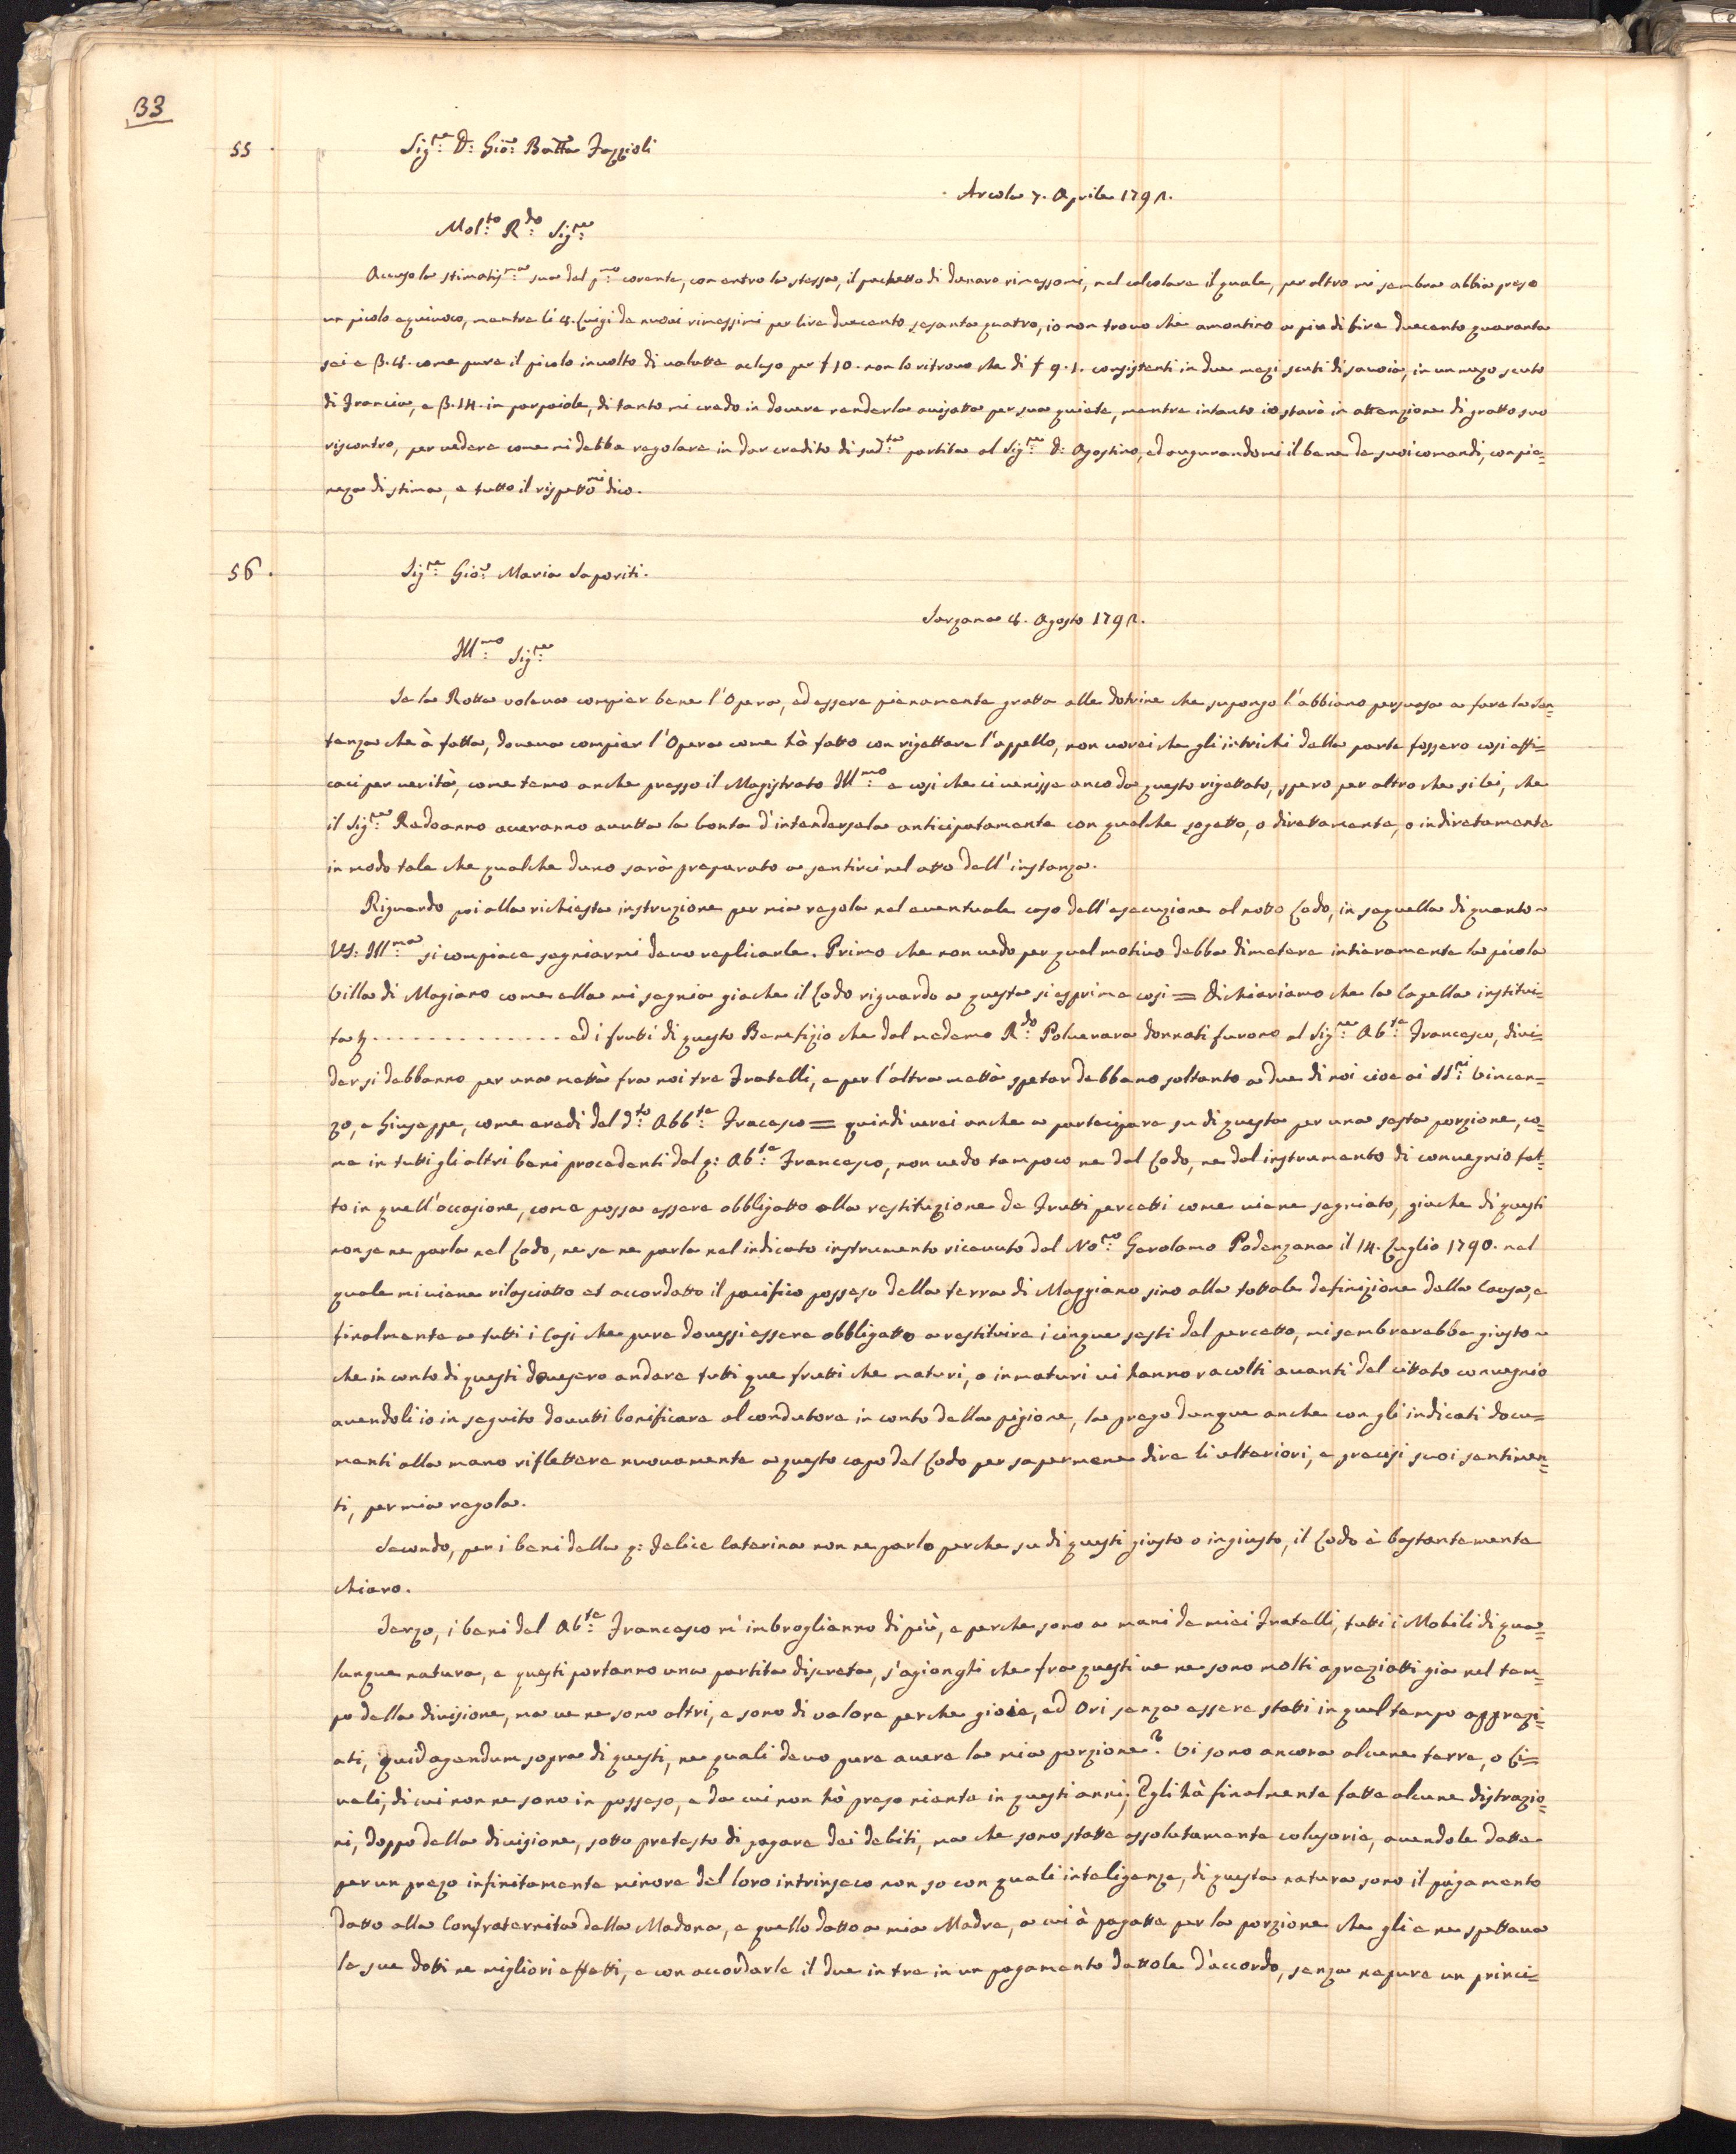 33
55 . Sig:re D: Gio: Batta Fazzioli
Arcola 7. Aprile 1791.
Mol:to R:do Sig:re
Accuso la stimatis:ma sua del p:mo corente, con entro la stessa, il pachetto di danaro rimessomi, nel calcolare il quale, per altro mi sembra abbia preso
un picolo equivoco, mentre li 4. Luigi de nuovi rimessimi per lire duecento sesanta quatro, io non trovo che amontino a più di lire duecento quaranta
sei e β. 4. come pure il picolo involto di valutte acluso per f 10. non lo ritrovo che di f 9. 1. consistenti in due mezi scuti di savoia, in un mezo scuto
di Francia, e β. 14. in parpaiole, di tanto mi credo in dovere renderla avisatta per sua quiete, mentre intanto io starò in attenzione di gratto suo
riscontro, per vedere come mi debba regolare in dar credito di sud:ta partita al Sig:re D: Agostino, ed augurandomi il bene de suoi comandi, con pie=
neza di stima, e tutto il rispetto mi dico.
56 . Sig:re Gio: Maria Saporiti.
Sarzana 4. Agosto 1791.
Ill:mo Sig:re
Se la Rotta voleva compier bene l'Opera, ed essere pienamente gratta alle dotrine che supongo l'abbiano persuasa a fare la Sen=
tenza che à fatta, doveva compier l'Opera come hà fatto con rigettare l'appello, non vorei che gli intrichi della parte fossero cosi effi=
caci per verità, come temo anche presso il Magistrato Ill:mo e cosi che ci venisse anco da questo rigettato, spero per altro che si lei, che
il Sig:re Redoanno averanno avutta la bonta d'intendersela anticipatamente con qualche sogetto, o direttamente, o indiretamente
in modo tale che qualche duno sarà preparato a sentirci nel atto dell'instanza.
Riguardo poi alla richiesta instruzione per mia regola nel eventuale caso dell'esecuzione al notto Lodo, in sequella di quanto
VS: Ill:ma si compiace segniarmi devo replicarle. Primo che non vedo per qual motivo debba dimetere intieramente la picola
Villa di Magiano come ella mi segnia giache il Lodo riguardo a questa si esprime cosi = Dichiariamo che la Capella institui=
ta . . . . . . . . . . . . . . ed i frutti di questo Benefizio che dal medemo R:do Polverara donnati furono al Sig:re Ab:te Francesco, divi=
der si debbanno per una mettà fra noi tre Fratelli, e per l'altra mettà spetar debbano soltanto a due di noi cioe ai SS:ri Vincen=
zo, e Giuseppe, come eredi del d:to Abb:te Fracesco = quindi verei anche a partecipare su di questa per una sesta porzione, co=
me in tutti gli altri beni procedenti dal q: Ab:te Francesco, non vedo tampoco ne dal Lodo, ne dal instrumento di convegnio fat=
to in quell'occasione, come possa essere obbligatto alla restituzione de Frutti percetti come viene segniato, giache di questi
non se ne parla nel Lodo, ne se ne parla nel indicato instrumento ricevuto dal No:ro Gerolamo Podenzana il 14. Luglio 1790. nel
quale mi viene rilasciatto et accordatto il pacifico posseso della terra di Maggiano sino alla tottale definizione della Causa, e
finalmente a tutti i Casi che pure dovessi essere obbligatto a restituire i cinque sesti del percetto, mi sembrerebbe giusto
che in conto di questi dovesero andare tutti que frutti che maturi, o inmaturi vi hanno racolti avanti del cittato convegnio
avendoli io in seguito dovutti bonificare al condutore in conto della pigione, la prego dunque anche con gli indicati docu=
menti alla mano riflettere nuovamente a questo capo del Lodo per sapermene dire li ulteriori, e precisi suoi sentimen=
ti, per mia regola.
Secondo, per i beni della q: Felice Caterina non ne parlo perche su di questi giusto o ingiusto, il Lodo è bastantemente
chiaro.
Terzo, i beni del Ab:te Francesco m'imbroglianno di più, e perche sono a mani de miei Fratelli, tutti i Mobili di qua=
lunque natura, e questi portanno una partita discreta, s'agionghi che fra questi ve ne sono molti apreziatti gia nel tem=
po della divisione, ma ve ne sono altri, e sono di valore perche gioie, ed Ori senza essere statti in quel tempo apprezi=
ati, quid agendum sopra di questi, ne quali devo pure avere la mia porzione? Vi sono ancora alcune terre, o Li=
velli, di cui non ne sono in posseso, e da cui non hò preso niente in questi anni; Egli hà finalmente fatte alcune distrazio=
ni, doppo della divisione, sotto pretesto di pagare dei debiti, ma che sono statte assolutamente colusorie, avendole datte
per un prezo infinitamente minore del loro intrinseco non so con quali inteligenze, di questa natura sono il pagamento
datto alla Confraternita della Madona, e quello datto a mia Madre, a cui à pagatta per la porzione che gli e ne spettava
le sue dotti ne migliori effetti, e con accordarle il due in tre in un pagamento dattole d'accordo, senza nepure un princi=